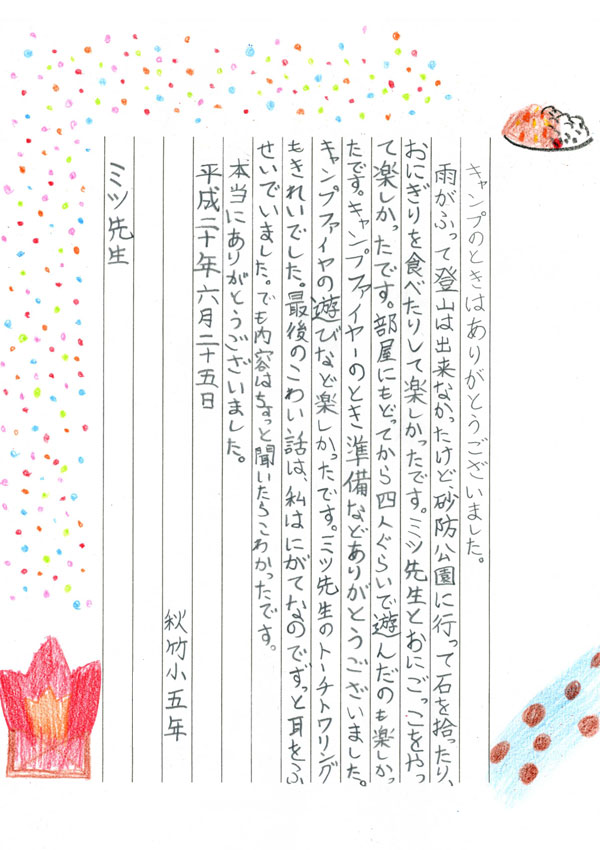 キャンプのときはありがとうございました。
雨がふって登山は出来なかったけど、砂防公園に行って石を拾ったり、
おにぎりを食べたりして楽しかったです。ミツ先生とおにごっこをやっ
て楽しかったです。部屋にもどってから四人ぐらいで遊んだのも楽しかっ
たです。キャンプファイヤーのとき準備などありがとうございました。
キャンプファイヤの遊びなど楽しかったです。ミツ先生のトーチトワリング
もきれいでした。最後のこわい話は、私はにがてなのでずっと耳をふ
せいでいました。でも内容はちょっと聞いたらこわかったです。
本当にありがとうございました。
平成二十年六月二十五日
秋竹小五年
ミツ先生